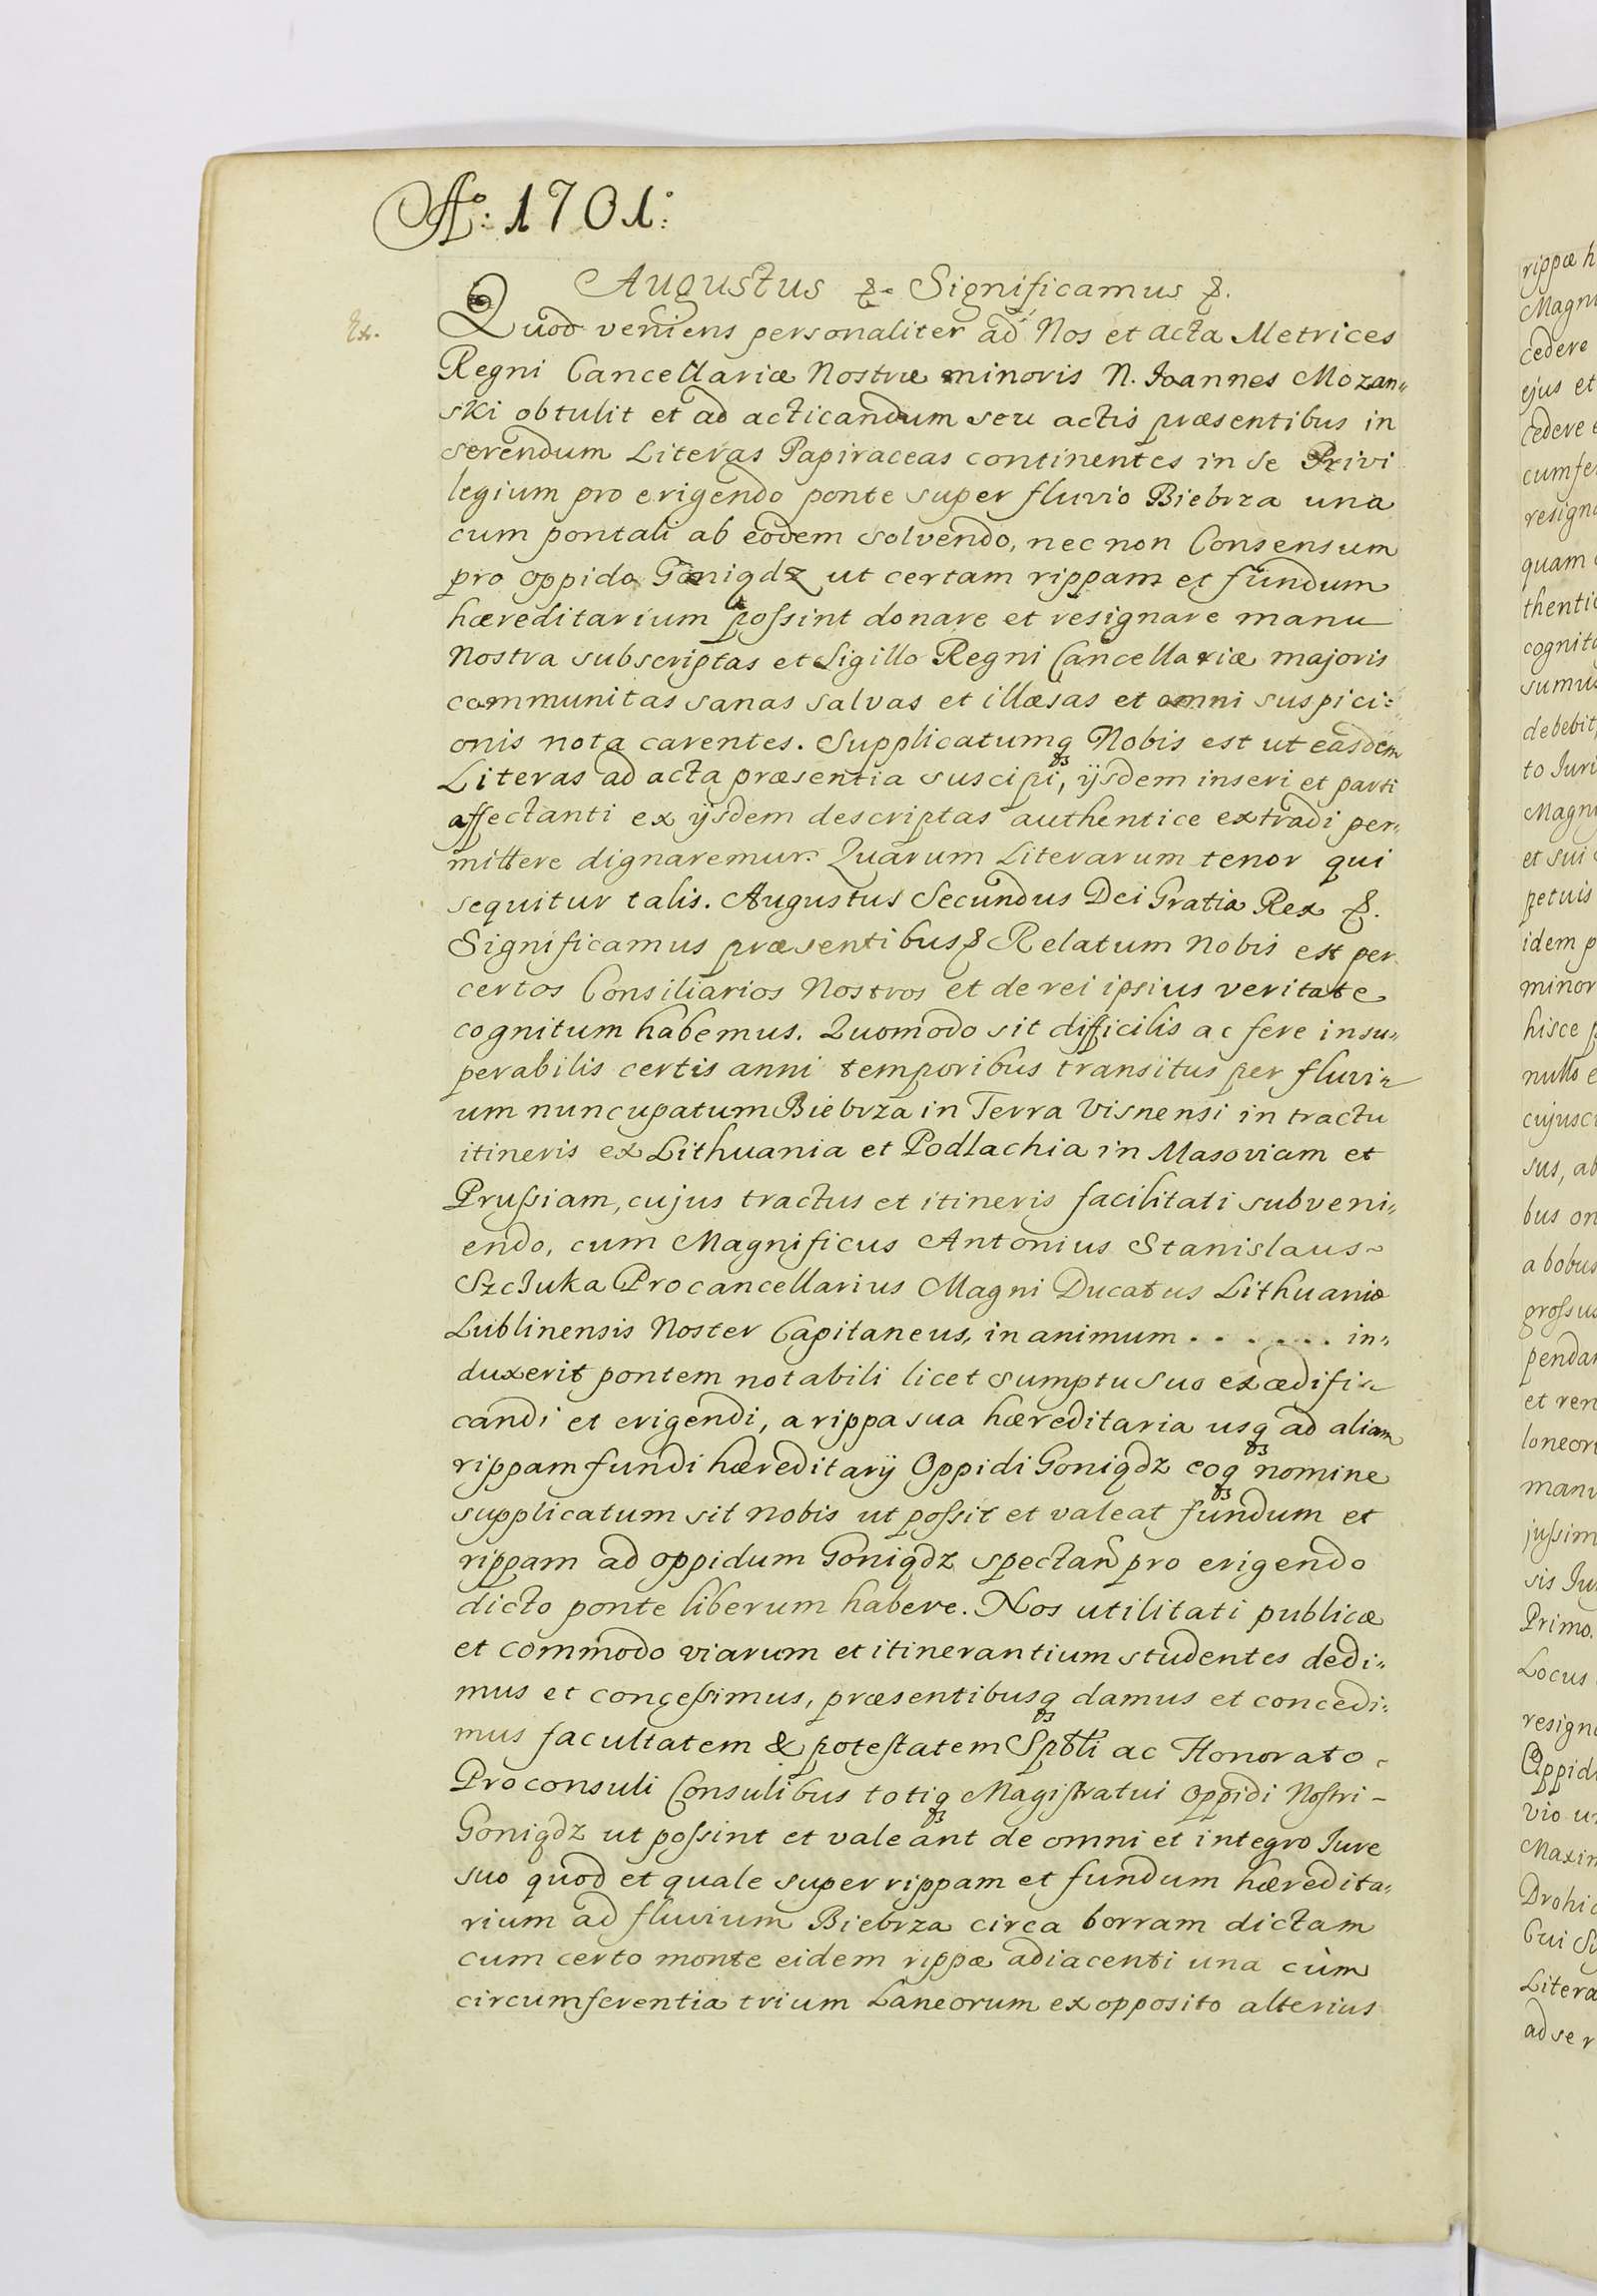 Aº: 1701:
Augustus &. Significamus &.
Ex.
Quod veniens personaliter ad Nos et acta Metrices
Regni Cancellariæ Nostræ minoris N. Joannes Mozan„
ski obtulit et ad acticandum seu actis præsentibus in
serendum Literas Papiraceas continentes in se Privi
legium pro erigendo ponte super fluvio Biebrza una
cum pontali ab eodem solvendo, nec non Consensum
pro oppido Goniądz ut certam rippam et fundum
hæreditarium possint donare et resignare manu
Nostra subscriptas et Sigillo Regni Cancellariæ majoris
communitas sanas salvas et illæsas et omni suspici:
onis nota carentes. Supplicatumqꝫ Nobis est ut easdem
Literas ad acta præsentia suscipi, ijsdem inseri et parti
affectanti ex ijsdem descriptas authentice extradi per„
mittere dignaremur. Quarum Literarum tenor qui
sequitur talis. Augustus Secundus Dei Gratia Rex &.
Significamus præsentibus & Relatum nobis est per
certos Consiliarios Nostros et de rei ipsius veritate
cognitum habemus. Quomodo sit difficilis ac fere insu„
perabilis certis anni temporibus transitus per fluvi„
um nuncupatum Biebrza in Terra Visnensi in tractu
itineris ex Lithuania et Podlachia in Masoviam et
Prussiam, cujus tractus et itineris facilitati subveni„
endo, cum Magnificus Antonius Stanislaus~
Szczuka Procancellarius Magni Ducatus Lithuaniæ
Lublinensis Noster Capitaneus, in animum . . . . . . . in„
duxerit pontem notabili licet sumptu suo exædifi„
candi et erigendi, a rippa sua hæreditaria usqꝫ ad aliam
rippam fundi hæreditarij Oppidi Goniądz eoqꝫ nomine
supplicatum sit nobis ut possit et valeat fundum et
rippam ad oppidum Goniądz spectan̄ pro erigendo
dicto ponte liberum habere. Nos utilitati publicæ
et commodo viarum et itinerantium studentes dedi„
mus et concessimus, præsentibusqꝫ damus et concedi„
mus facultatem & potestatem Spbli ac Honorato
Proconsuli Consulibus totiqꝫ Magistratui Oppidi Nostri –
Goniądz ut possint et valeant de omni et integro Jure
suo quod et quale super rippam et fundum hæredita„
rium ad fluvium Biebrza circa borram dictam
cum certo monte eidem rippæ adiacenti una cum
circumferentia trium Laneorum ex opposito alterius
rippæ h
cedere
ejus et
cedere
quam
sumus
petuis
idem p
minor
hisce
cujusc
sus, ab
a bobus
et ren
Primo.
Locus
vio
Drohi
ad se